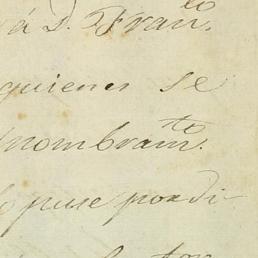 á D. Fran.co
quienes se
nombram.to
puse por di-